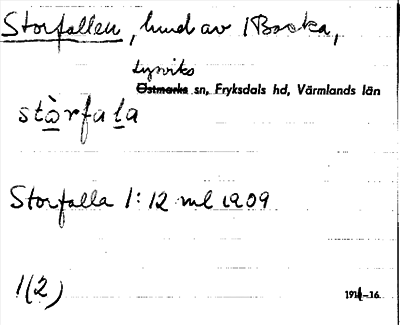 Storfallen, hmd av N Backa,
Lysviks
Östmarks sn, Fryksdals hd, Värmlands län
stòrfala
Storfalla 1:12 ml 1909
1(2)
1914-16.